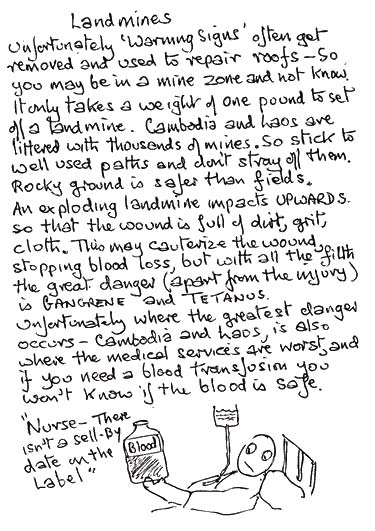 Landmines
Unfortunately 'Warning Signs' often get
removed and used to repair roofs - So
you may be in a mine zone and not know.
It only takes a weight of one pound to set
off a landmine. Cambodia and Laos are
littered with thousands of mines. So stick to
well used paths and don't stray off them.
Rocky ground is safer than fields.
An exploding landmine impacts UPWARDS.
so that the wound is full of dirt, grit,
cloth. This may cauterize the wound,
stopping blood loss, but with all the filth
the great danger (apart from the injury)
is GANGRENE and TETANUS.
Unfortunately where the greatest danger
occurs - Cambodia and Laos, is also
where the medical services are worst, and
if you need a blood transfusion you
won't know if the blood is safe.
"Nurse - There
isn't a sell-By
date on the
Label"
Blood